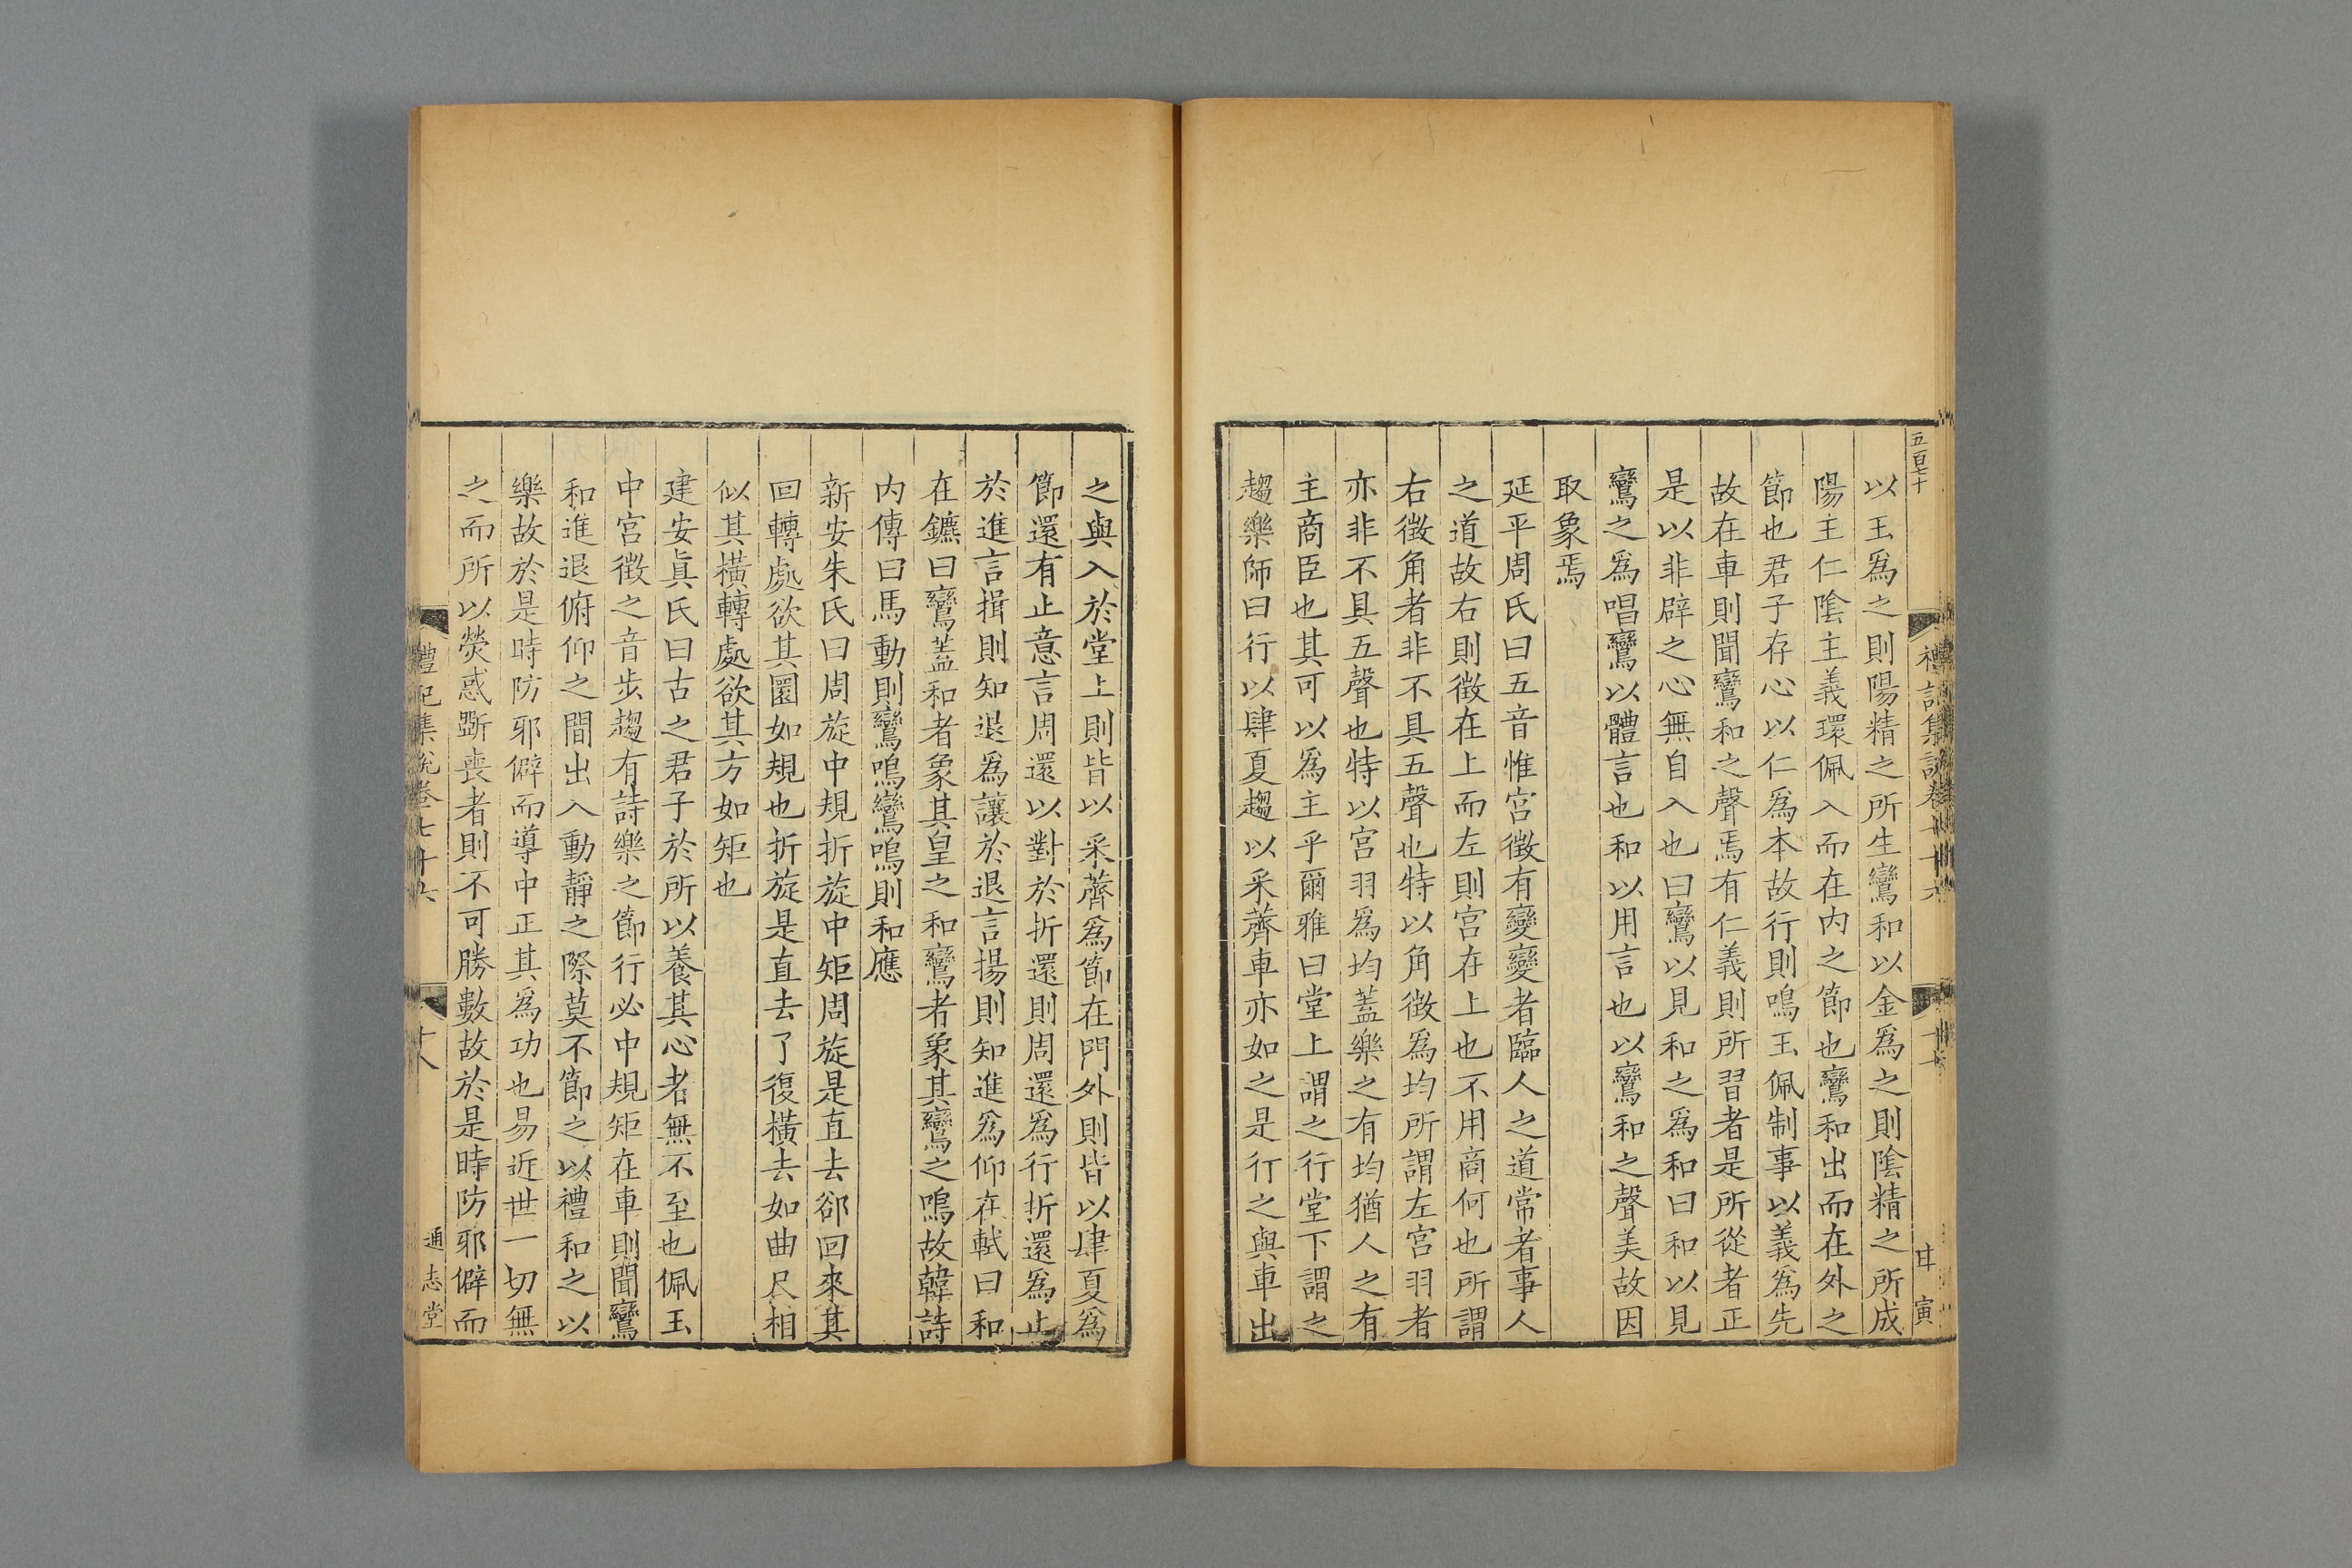 五百七十
禮記集說卷七十六
十七
甘寅
以玉爲之則陽精之所生鸞和以金爲之則陰精之所成
陽主仁陰主義環佩入而在內之節也鸞和出而在外之
節也君子存心以仁爲本故行則鳴玉佩制事以義爲先
故在車則聞鸞和之聲焉有仁義則所習者是所從者正
是以非辟之心無自入也曰鸞以見和之爲和曰和以見
鸞之爲唱鸞以體言也和以用言也以鸞和之聲美故因
取象焉
延平周氏曰五音惟宮徵有變變者臨人之道常者事人
之道故右則徵在上而左則宮在上也不用商何也所謂
右徵角者非不具五聲也特以角徵爲均所謂左宮羽者
亦非不具五聲也特以宮羽爲均蓋樂之有均猶人之有
主商臣也其可以爲主乎爾雅曰堂上謂之行堂下謂之
趨樂師曰行以肆夏趨以采薺車亦如之是行之與車出
之與入於堂上則皆以采薺爲節在門外則皆以肆夏爲
節還有止意言周還以對於折還則周還爲行折還爲止
於進言揖則知退爲讓於退言揚則知進爲仰在軾曰和
在鑣曰鸞蓋和者象其皇之和鸞者象其鸞之鳴故韓詩
內傳曰馬動則鸞鳴鸞鳴則和應
新安朱氏曰周旋中規折旋中矩周旋是直去郤回來其
回轉處欲其圜如規也折旋是直去了復橫去如曲尺相
似其橫轉處欲其方如矩也
建安眞氏曰古之君子於所以養其心者無不至也佩玉
中宮徵之音步趨有詩樂之節行必中規矩在車則聞鸞
和進退俯仰之間出入動靜之際莫不節之以禮和之以
樂故於是時防邪僻而導中正其爲功也易近世一切無
之而所以熒惑斲喪者則不可勝數故於是時防邪僻而
禮記集說卷七十六
十八
通志堂